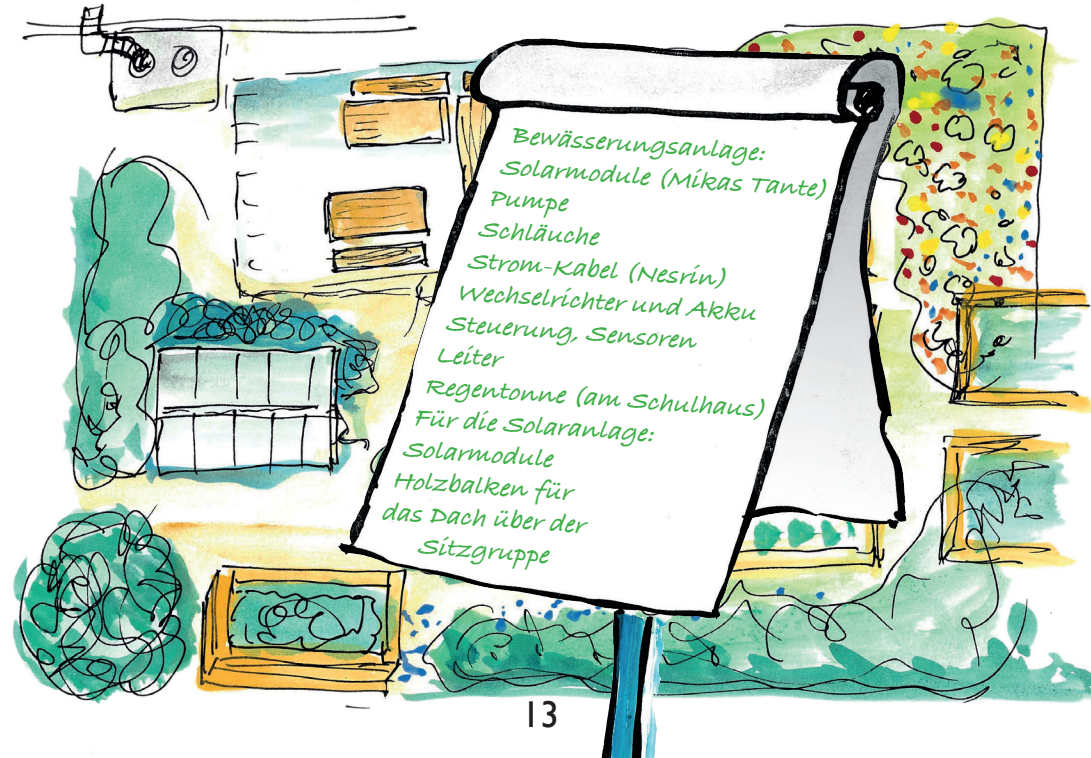 Bewässerungsanlage:
Solarmodule (Mikas Tante)
Pumpe
Schläuche
Strom-Kabel (Nesrin)
Wechselrichter und Akku
Steuerung, Sensoren
Leiter
Regentonne (am Schulhaus)
Für die Solaranlage:
Solarmodule
Holzbalken für
das Dach über der
Sitzgruppe
13